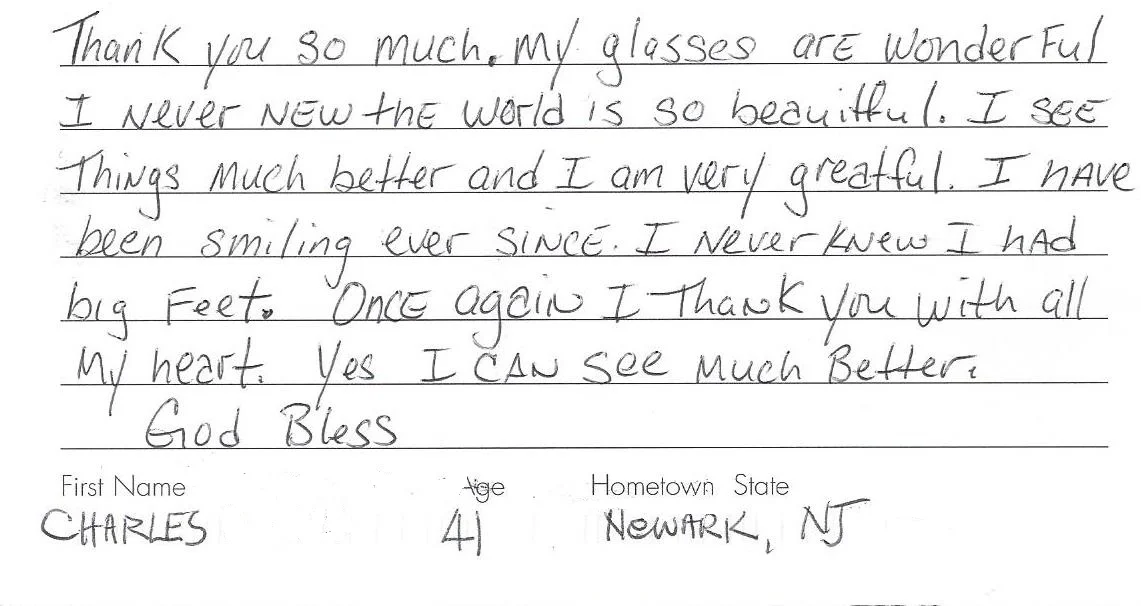 Thank you so much. My glasses are wonderful
I never new the world is so beauitful. I see
things much better and I am very greatful. I have
been smiling ever since. I never knew I had
big feet. Once again I thank you with all
my heart. Yes I can see much better.
God Bless
First Name Age Hometown State
CHARLES 41 Newark, NJ